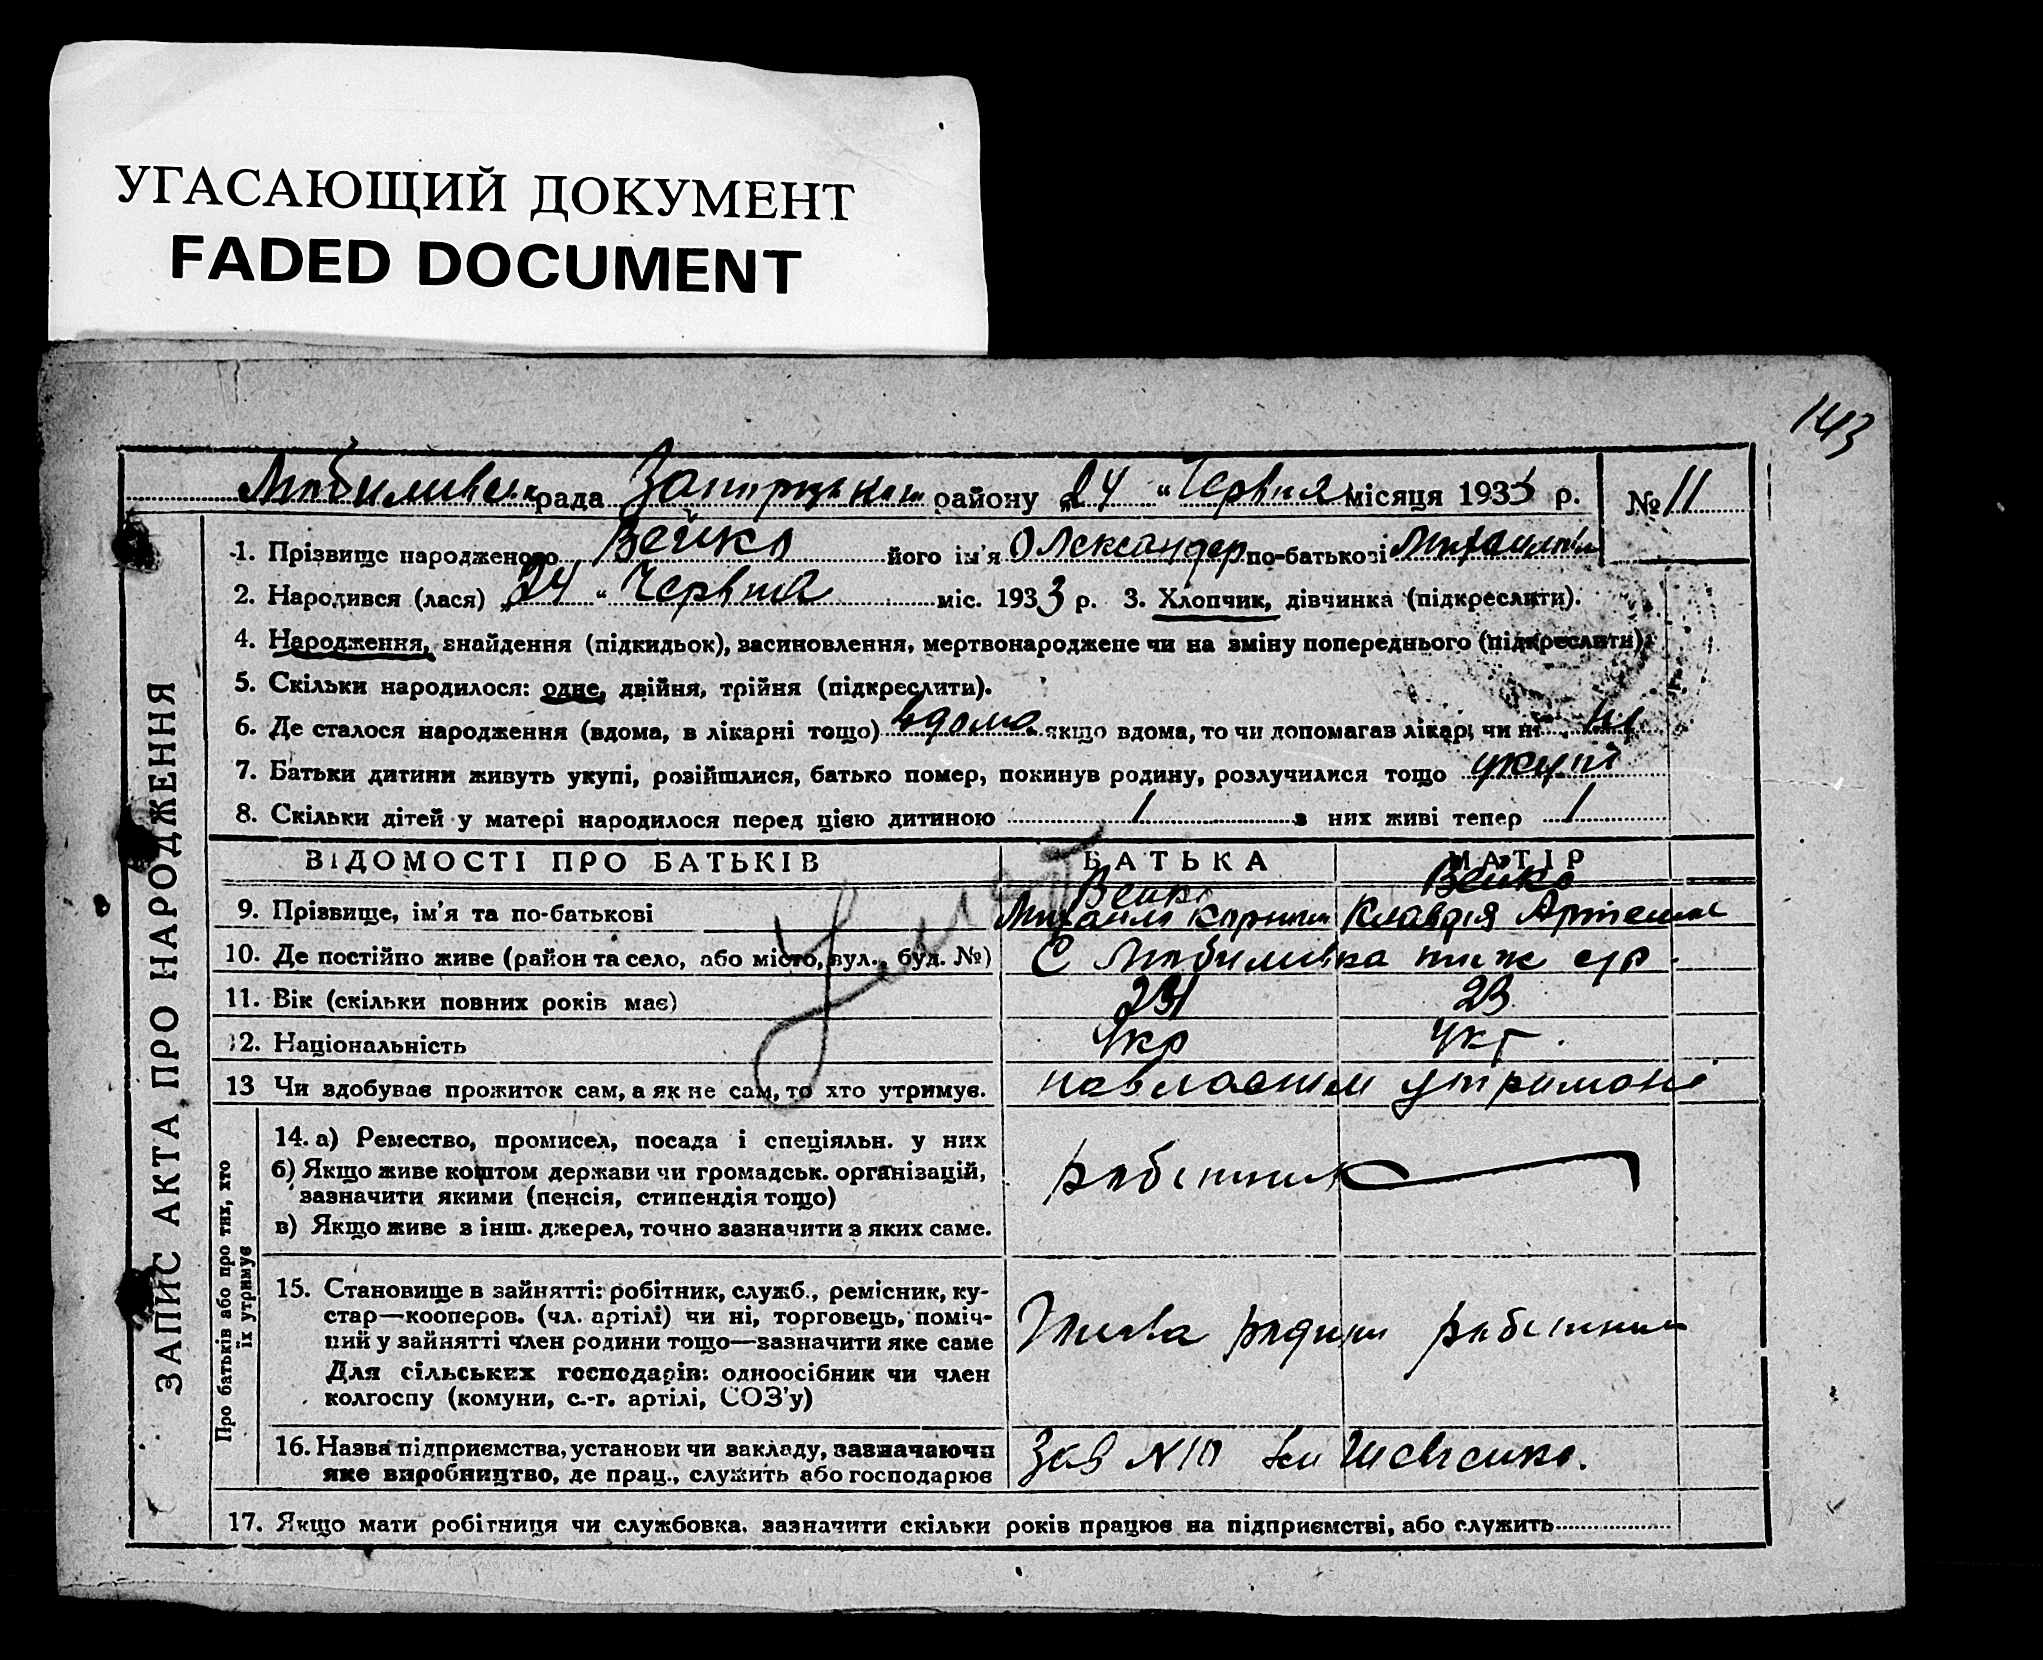 УГАСАЮЩИЙ ДОКУМЕНТ
FADED DOCUMENT
143
рада району 24 " Червня місяця 1933 р. № 11
ЗАПИС АКТА ПРО НАРОДЖЕННЯ
1. Прізвище народженого Вейко його ім'я Олександер по-батькові
2. Народився (лася) „24 " Червня міс. 1933 р. 3. Хлопчик, дівчинка (підкреслити).
4. Народження, знайдення (підкидьок), засиновлення, мертвонароджене чи на зміну попереднього (підкреслити).
5. Скільки народилося: одне, двійня, трійня (підкреслити).
6. Де сталося народження (вдома, в лікарні тощо) вдома якщо вдома, то чи допомагав лікар, чи ні ні
7. Батьки дитини живуть укупі, розійшлися, батько помер, покинув родину, розлучилися тощо укупі
8. Скільки дітей у матері народилося перед цією дитиною 1 з них живі тепер 1
ВІДОМОСТІ ПРО БАТЬКІВ БАТЬКА МАТІР
Вейко Вейко
9. Прізвище, ім'я та по-батькові Клавдія
10. Де постійно живе (район та село, або місто, вул., буд. №) С
11. Вік (скільки повних років має) 23
12. Національність Укр Укр.
13 Чи здобуває прожиток сам, а як не сам, то хто утримує.
Про батьків або про тих, хто їх утримує
14. а) Ремество, промисел, посада і спеціяльн. у них
б) Якщо живе коштом держави чи громадськ. організацій,
зазначити якими (пенсія, стипендія тощо)
в) Якщо живе з інш. джерел, точно зазначити з яких саме.
15. Становище в зайнятті: робітник, служб., ремісник, ку-
стар—кооперов. (чл. артілі) чи ні, торговець, поміч-
ний у зайнятті член родини тощо—зазначити яке саме
Для сільських господарів: одноосібник чи член
колгоспу (комуни, с.-г. артілі, СОЗ'у)
16. Назва підприємства, установи чи закладу, зазначаючи
яке виробництво, де прац., служить або господарює
17. Якщо мати робітниця чи службовка, зазначити скільки років працює на підприємстві, або служить